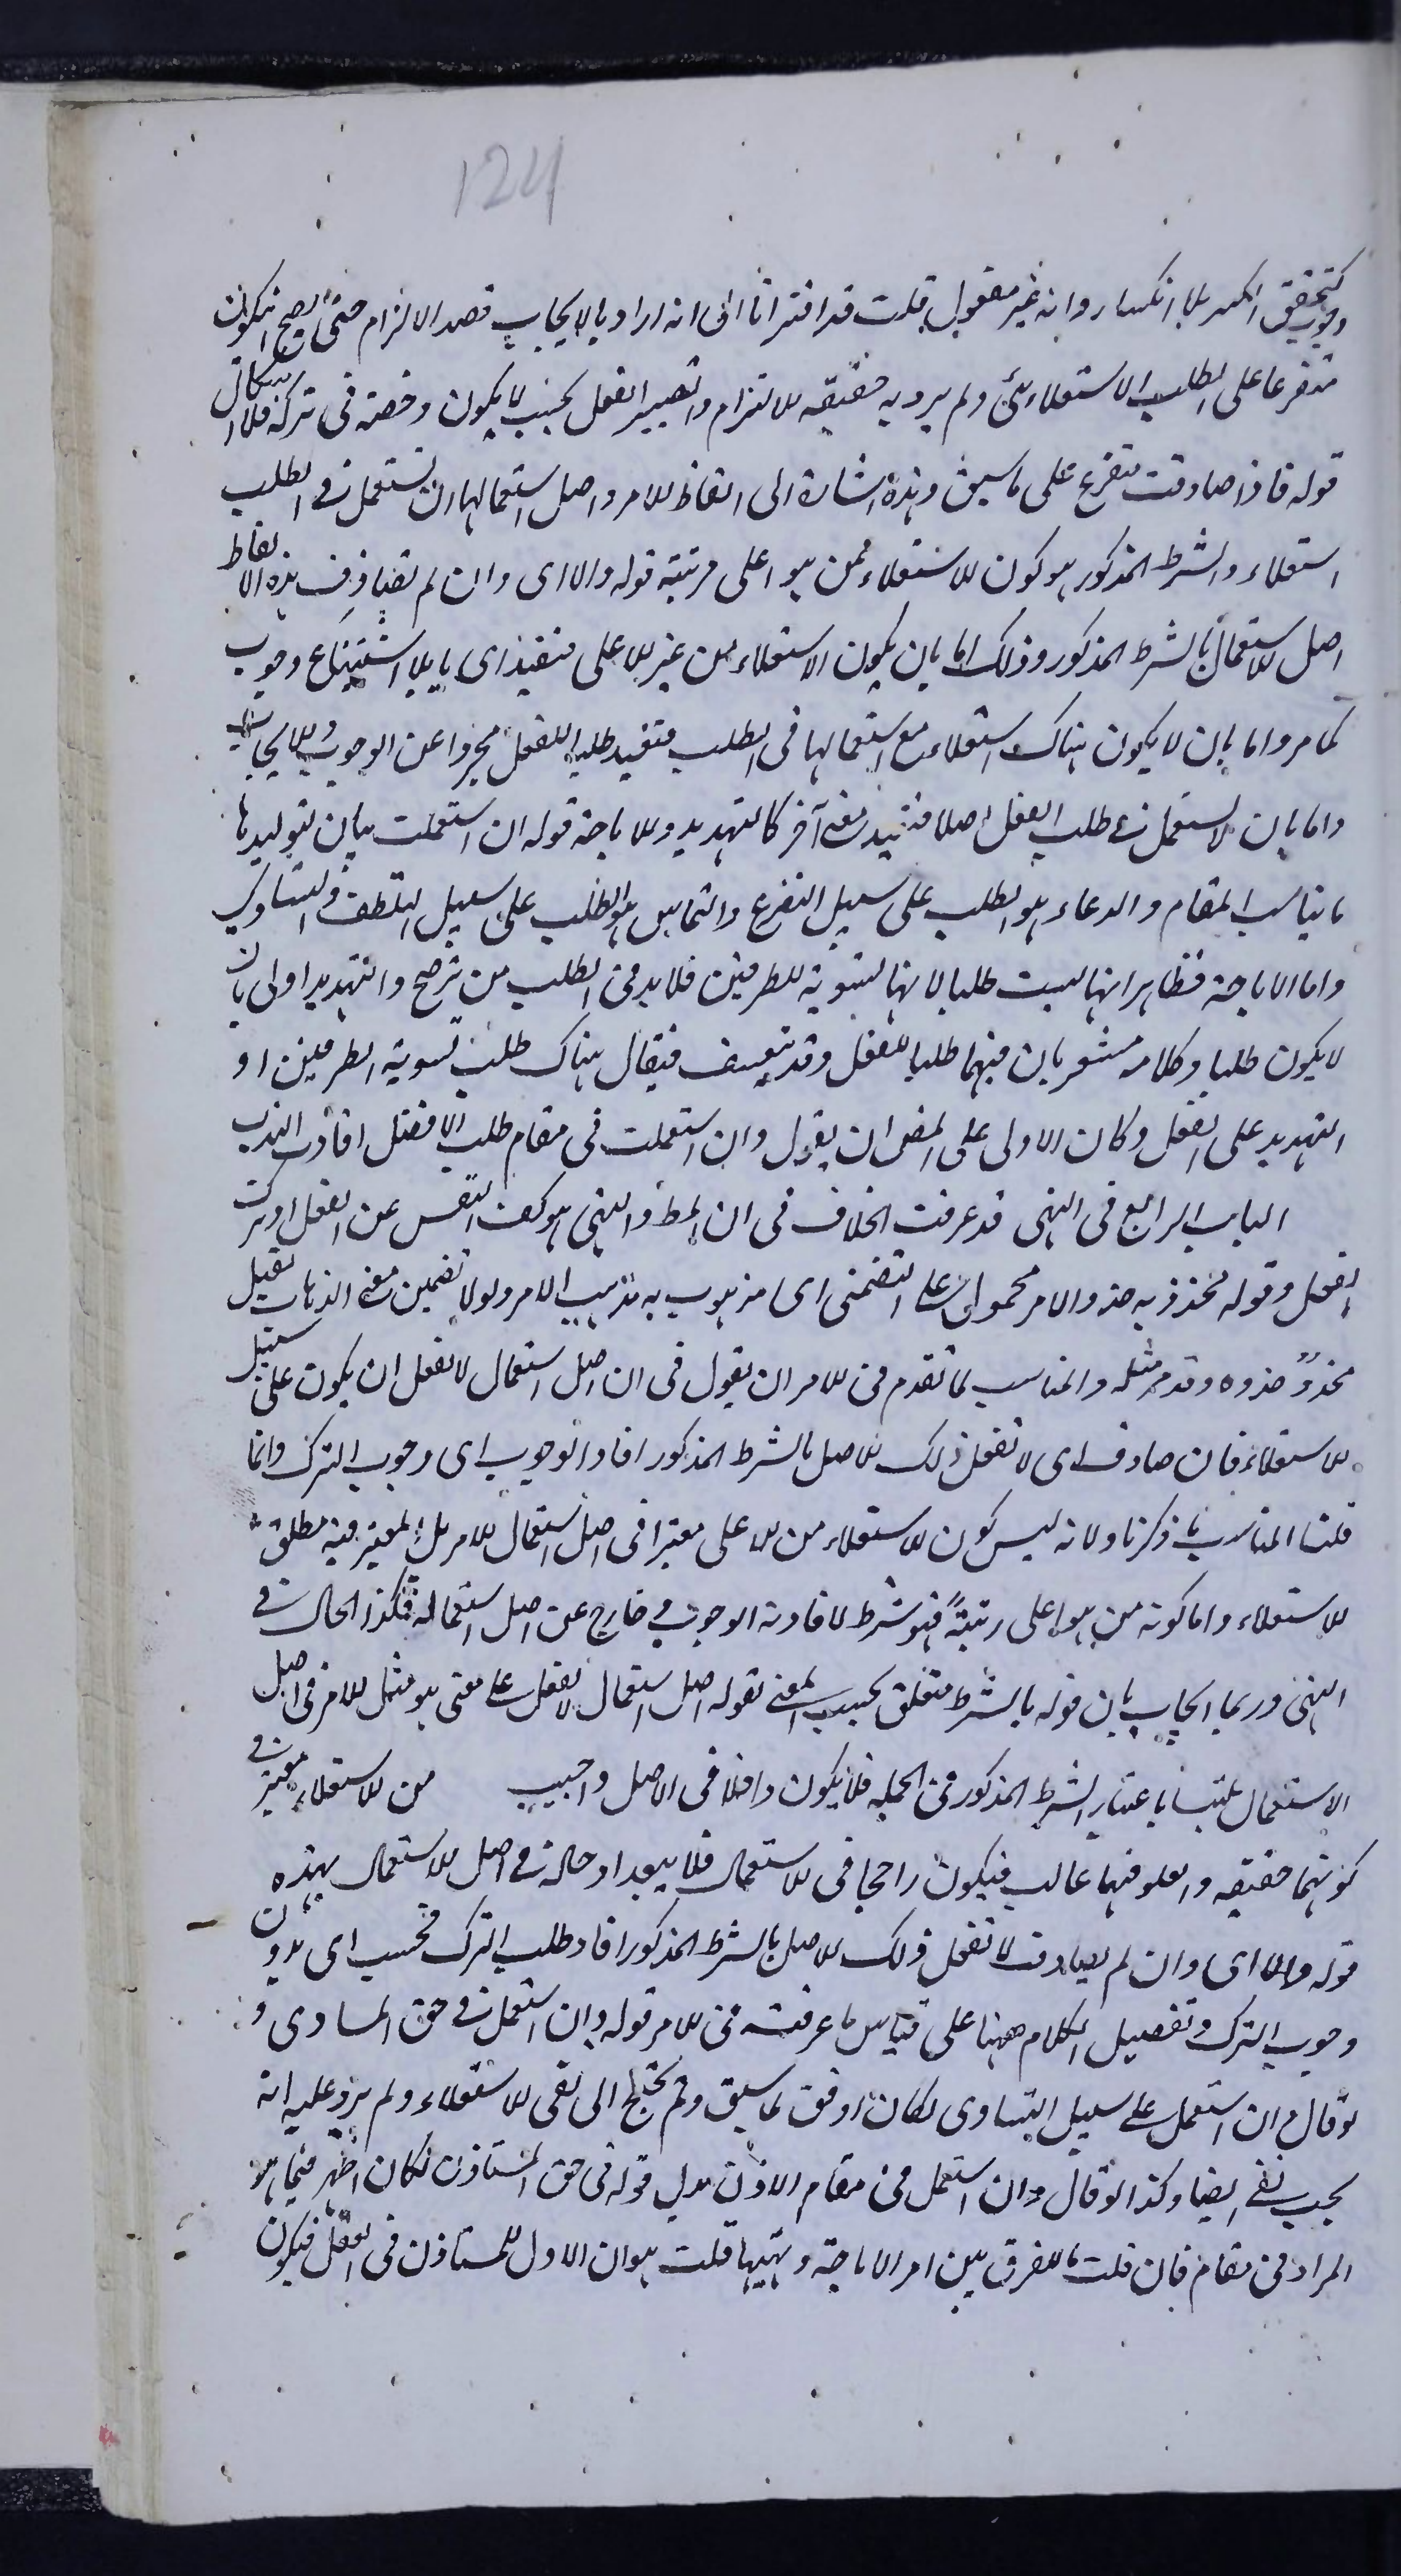 124
وجوب كتحقق الكسر بلا انكسار وانه غير معقول قلت قد اشرنا الى انه اراد بالايجاب قصد الالزام حتى يصح ان يكون
متفرعا على الطلب الاستعلائى ولم يرد به حقيقة الالزام وتصيير الفعل بحيث لا يكون رخصة فى تركه فلا اشكال
قوله فاذا صادفت متفرع على ما سبق وهذه اشارة الى الفاظ الامر واصل استعمالها ان تستعمل فى الطلب
استعلاء والشرط المذكور هو كون الاستعلاء ممن هو اعلى مرتبة قوله والا اى وان لم تصادف هذه الالفاظ
اصل الاستعمال بالشرط المذكور وذلك اما بان يكون الاستعلاء من غير الاعلى فتفيد ايجابا بلا استتباع وجوب
كما مر واما بان لا يكون هناك استعلاء مع استعمالها فى الطلب فتفيد طلب الفعل مجردا عن الوجوب والايجاب
واما بان لا يستعمل فى طلب الفعل اصلا فتفيد معنى آخر كالتهديد والاباحة قوله ان استعملت بيان لتوليدها
ما يناسب المقام والدعاء هو الطلب على سبيل التضرع والتماس هو الطلب على سبيل التلطف والتساوى
واما الاباحة فظاهر انها ليست طلبا لانها تسوية للطرفين فلا بد فى الطلب من ترجيح والتهديد اولى بان
لا يكون طلبا وكلامه مشعر بان فيهما طلبا للفعل وقد يتعسف فيقال هناك طلب تسوية الطرفين او
التهديد على الفعل وكان الاولى على المص ان يقول وان استعملت فى مقام طلب الافضل افادت الندب
الباب الرابع فى النهى قد عرفت الخلاف فى ان المط والنهى هو كف النفس عن الفعل او ترك
الفعل وقوله محذو به حذو الامر محمول على التضمنى اى مذهوب به مذهب الامر ولولا تضمين معنى الذهاب لقيل
محذوّ حذوه وقد مر مثله والمناسب لما تقدم فى الامر ان يقول فى ان اصل استعمال لا تفعل ان يكون على سبيل
الاستعلاء فان صادف اى لا تفعل ذلك الاصل بالشرط المذكور افاد الوجوب اى وجوب الترك وانما
قلنا المناسب ما ذكرنا ولانه ليس كون الاستعلاء من الاعلى معتبرا فى اصل استعمال الامر بل المعتبر فيه مطلق
الاستعلاء واما كونه من هو اعلى رتبةً فهو شرط لافادته الوجوب خارج عن اصل استعماله فكذا الحال فى
النهى وربما اجاب بان قوله بالشرط متعلق بحسب المعنى بقوله اصل استعمال لا تفعل على معنى هو مثل الامر فى اصل
الاستعمال ملتبسا باعتبار الشرط المذكور فى الجملة فلا يكون داخلا فى الاصل واجيب من الاستعلاء معتبر فى
كونهما حقيقة والعلو فيهما غالب فيكون راجحا فى الاستعمال فلا يبعد ادخاله فى اصل الاستعمال بهذه
قوله والا اى وان لم يصادف لا تفعل ذلك الاصل بالشرط المذكور افاد طلب الترك فحسب اى بدون
وجوب الترك وتفصيل الكلام ههنا على قياس ما عرفت فى الامر قوله وان استعمل فى حق المساوى و
لو قال ان استعمل على سبيل التساوى لكان اوفق لما سبق ولم يحتج الى نفى الاستعلاء ولم يرد عليه انه
يجب نفى ايضا وكذا لو قال وان استعمل فى مقام الاذن بدل قوله فى حق المستأذن لكان اظهر فيما هو
المراد فى مقام فان قلت ما الفرق بين امر الاباحة ونهيها قلت هو ان الاول للمستأذن فى الفعل فيكون